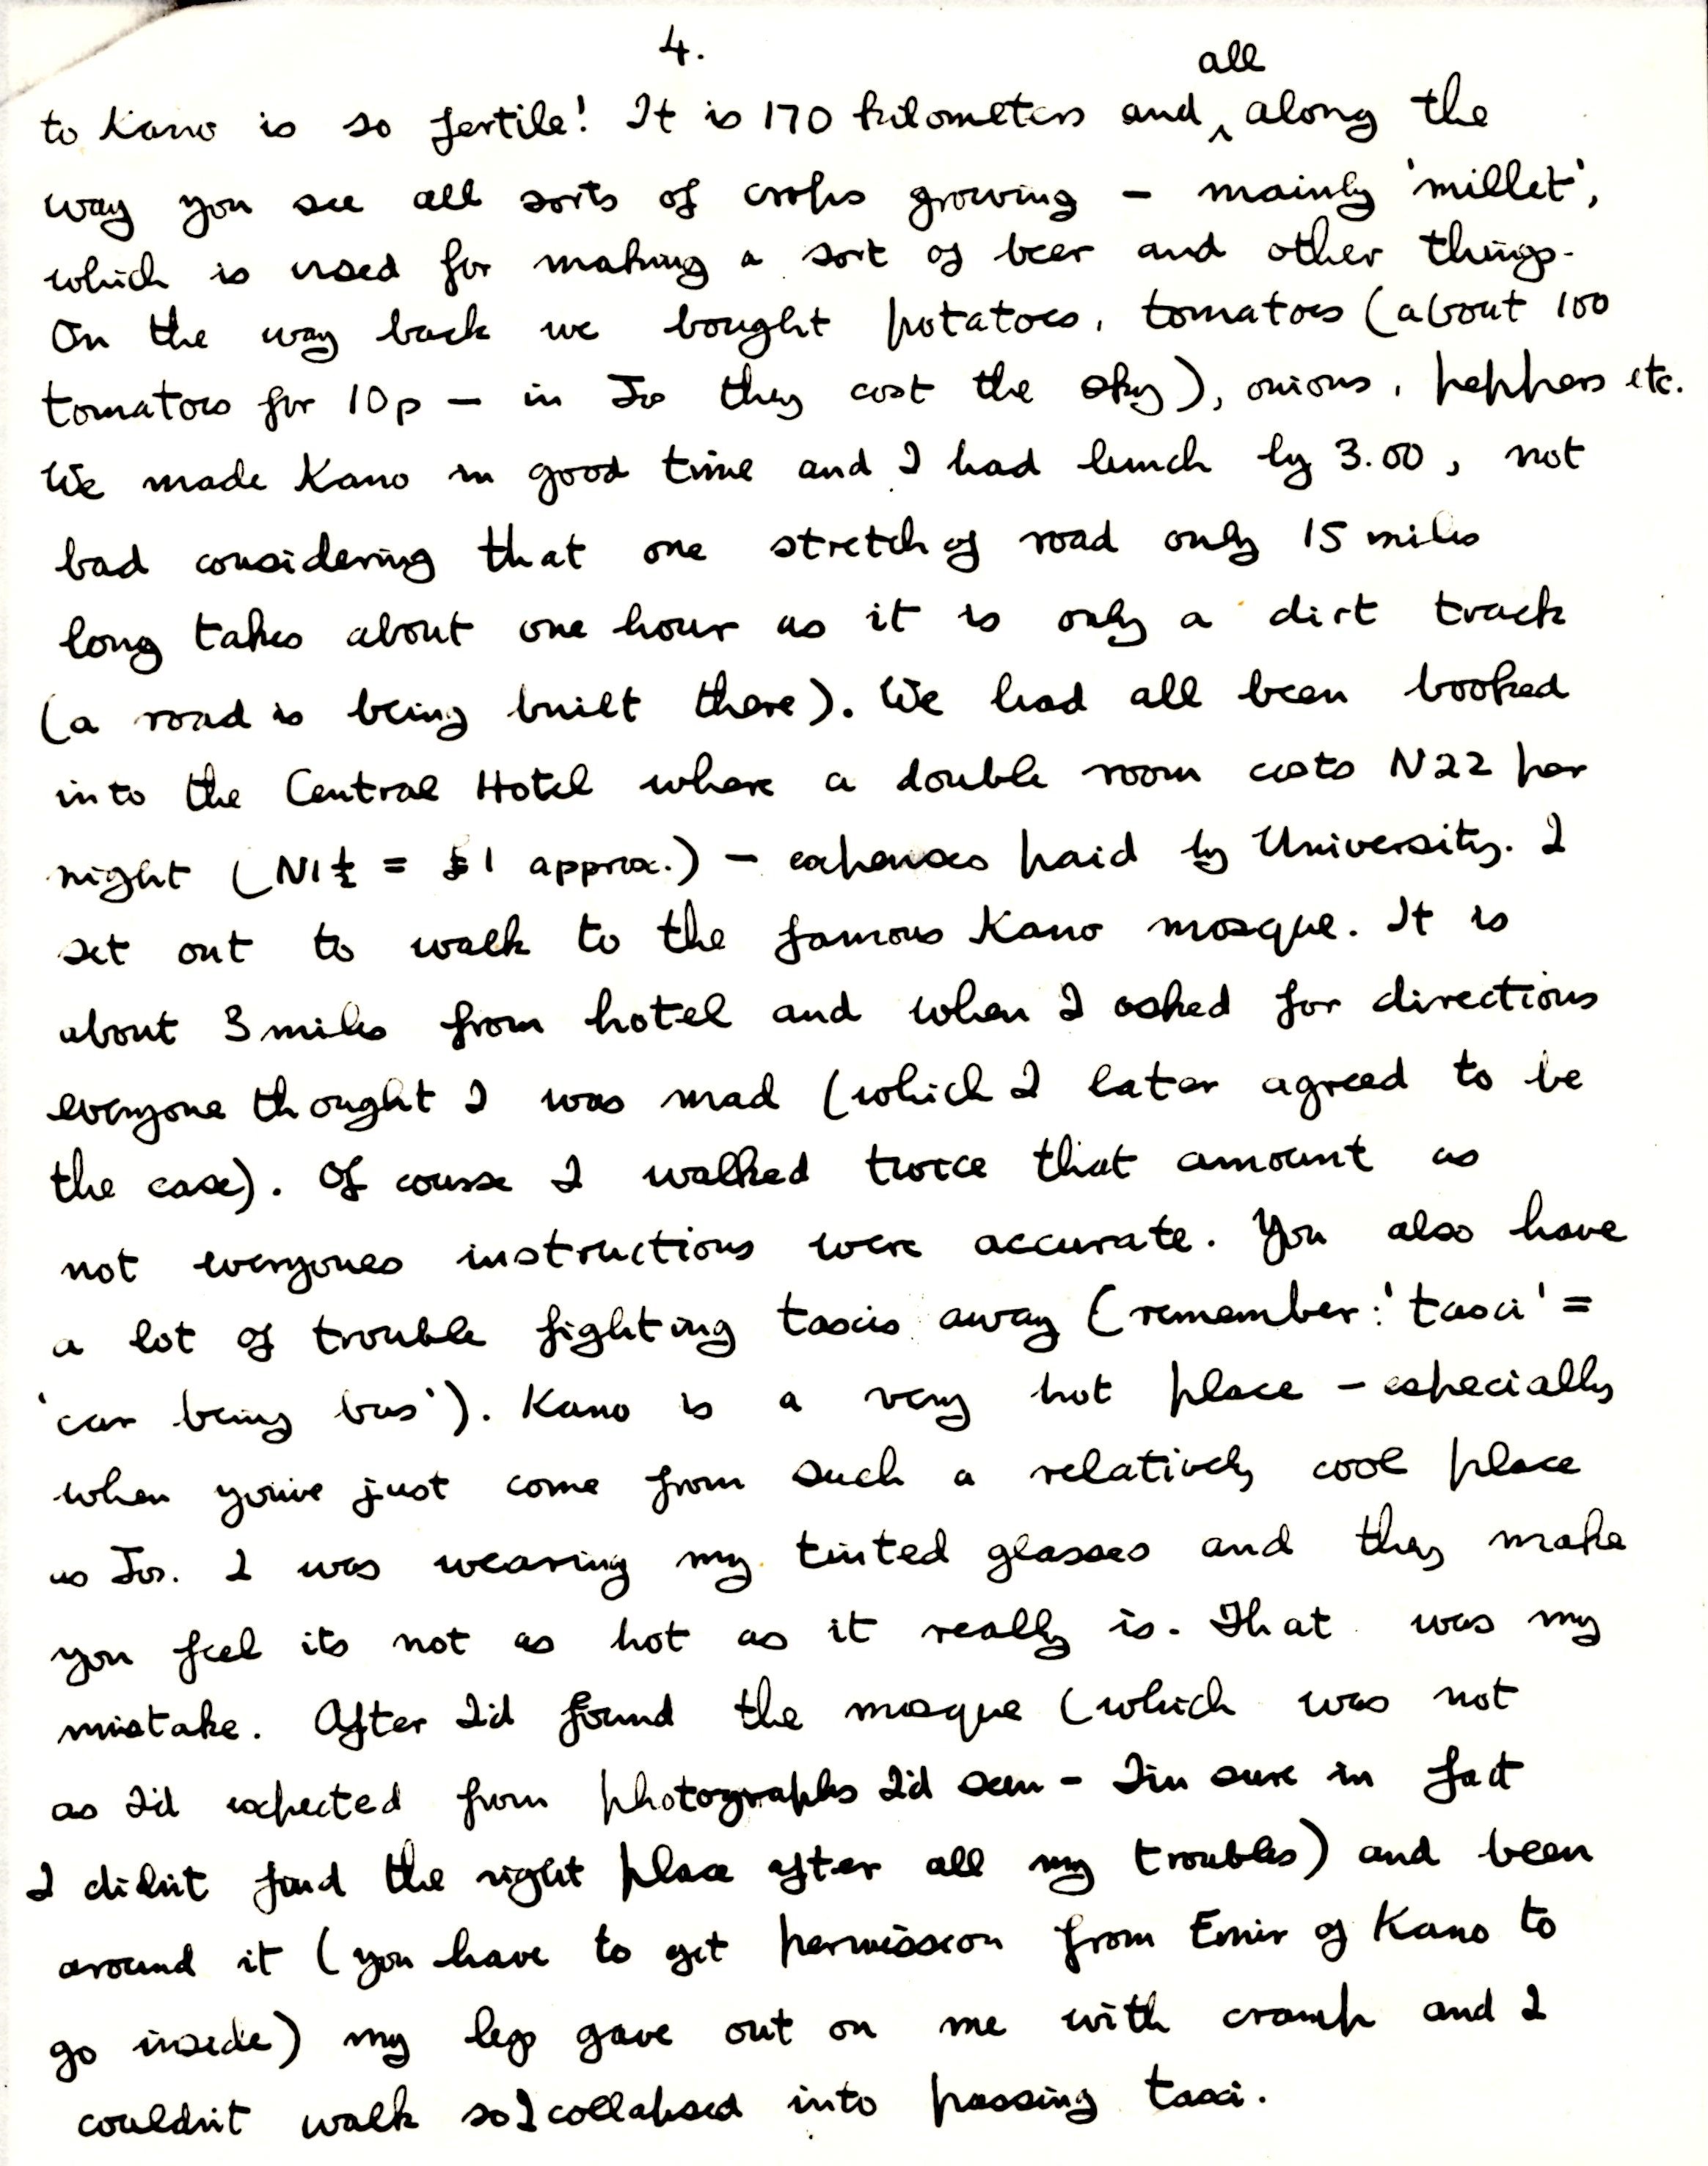 4.
all
to Kano is so fertile! It is 170 kilometers and ‸ along the
way you see all sorts of crops growing – mainly 'millet',
which is used for making a sort of beer and other things.
On the way back we bought potatoes, tomatoes (about 100
tomatoes for 10p – in Jos they cost the sky), onions, peppers etc.
We made Kano in good time and I had lunch by 3.00, not
bad considering that one stretch of road only 15 miles
long takes about one hour as it is only a dirt track
(a road is being built there). We had all been booked
into the Central Hotel where a double room costs N22 per
night (N1½ = £1 approx.) – expenses paid by University. I
set out to walk to the famous Kano mosque. It is
about 3 miles from hotel and when I asked for directions
everyone thought I was mad (which I later agreed to be
the case). Of course I walked twice that amount as
not everyones instructions were accurate. You also have
a lot of trouble fighting taxis away (remember: 'taxi' =
'car being bus'). Kano is a very hot place – especially
when you've just come from such a relatively cool place
as Jos. I was wearing my tinted glasses and they make
you feel its not as hot as it really is. That was my
mistake. After I'd found the mosque (which was not
as I'd expected from photographs I'd seen – I'm sure in fact
I didn't find the right place after all my troubles) and been
around it (you have to get permission from Emir of Kano to
go inside) my legs gave out on me with cramp and I
couldn't walk so I collapsed into passing taxi.